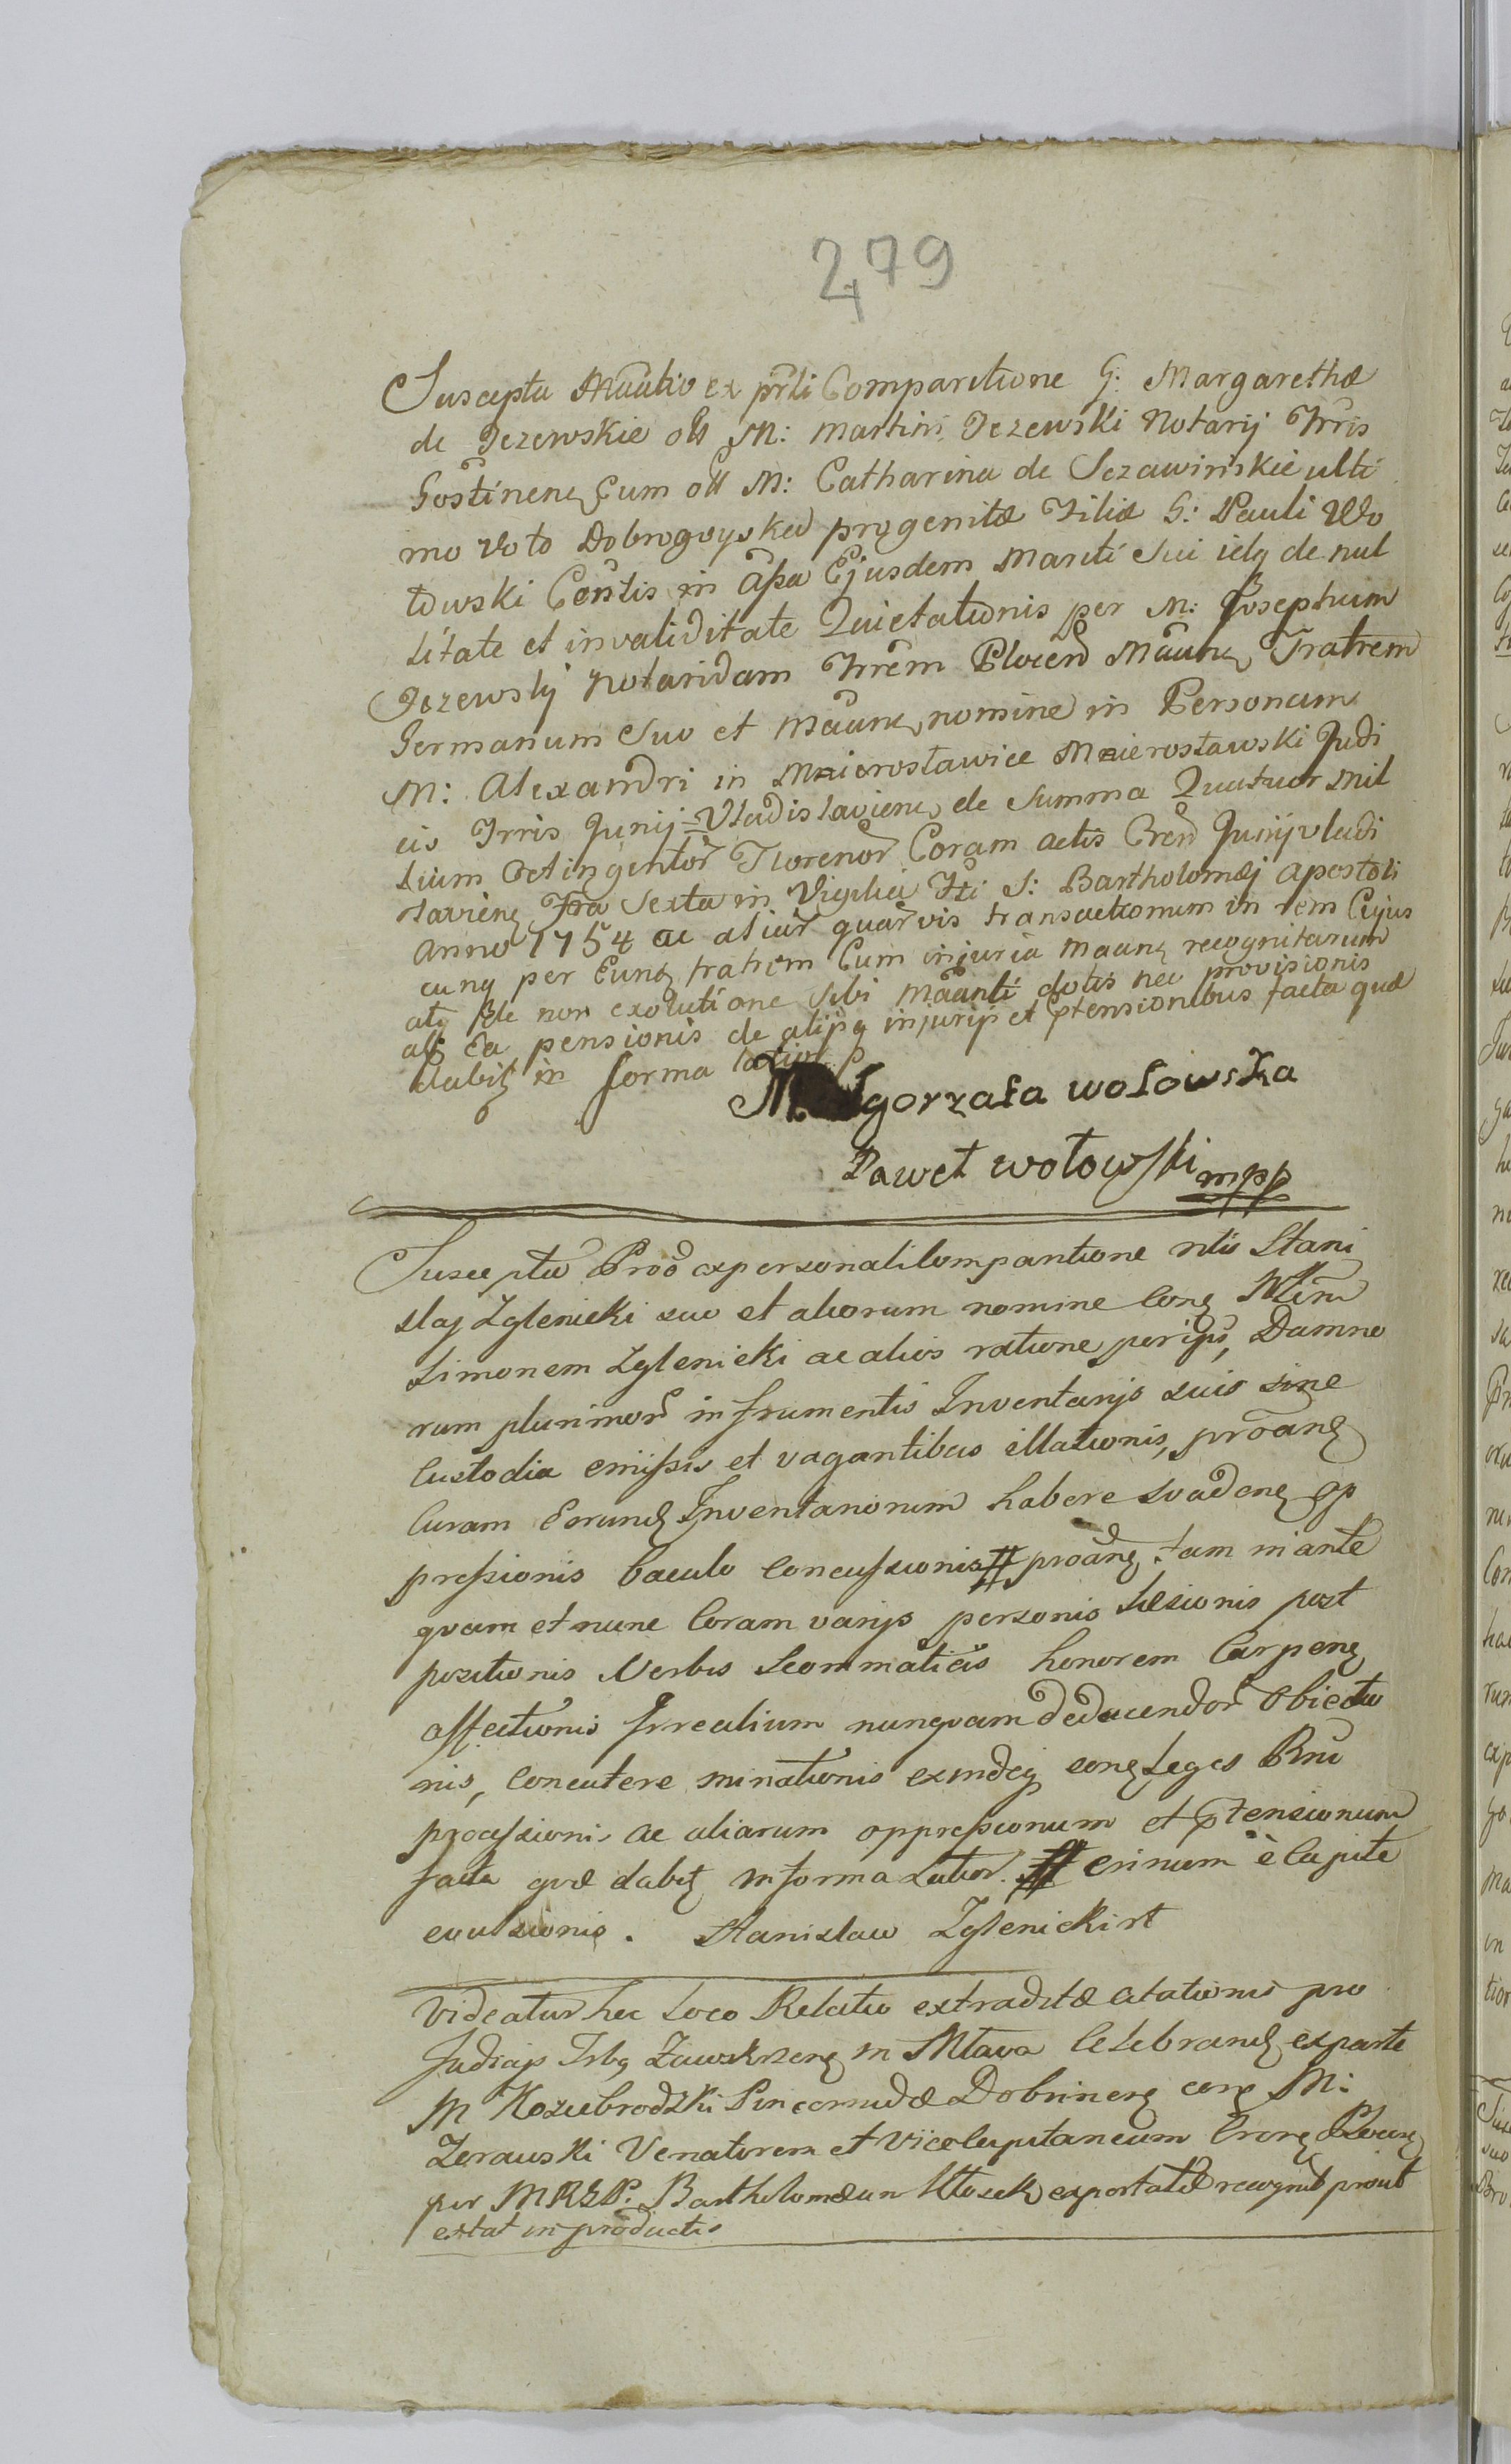 279
Suscepta Mãnlio ex prñli Comparitione G: Margarethæ
de Jezewskie oll M: Martini Jezewski Notarij Trris
Gostinenę Cum oll M: Catharina de Sczawinskie ulti
mo voto Dobrogoyska progenitæ Filiæ G: Pauli Wo
łowski Cõnstis in aßa Ejusdem Mariti sui idq de nul
litate et invaliditate Quietationis per M: Josephum
Jezewskj Notaridam Trrem Plocen Maunę, Fratrem
Germanum suo et Maunę, nomine in Personam
M: Alexandri in Mnierosławice Mnierosławski Judi
cis Trris Junij-Vladislaviene, de Summa Quatuor Mil
lium Octingentor̃ Florenor̃ Coram actis Cren̄ Junijvladi
slaviene Fr̃a Sexta in Vigilia Fti S: Bartholomæj Apostoli
Anno 1754 ac aliar̃ quar̃vis transactionum in rem Cujus
cunq per Eunḑ fratrem Cum injuria Maunę recognitarum
atq de non exolutione sibi Mãanti dotis nec provisionis
als Ea pensionis de alijsq injurijs et ptensionibus facta quæ
dabitʒ in forma latiori p
Małgorzata wołowska
Paweł wołowski mpp
Suscepta Prõ expersonali Comparitione Nlis Stani
slaj Zglenicki suo et aliorum nomine Conę Nlem
Simonem Zglenicki ac alios ratione perijs, Damno
rum plurimor̃ in frumentis Inventarijs suis sine
Custodia emißis et vagantibus illationis, prõanḑ
Curam Eorunḑ Inventariorum habere svadenę op
preßionis baculo Concußionis # prõanḑ tam inante
qvam et nunc Coram varijs personis Læsionis post
positionis Verbis Scommaticis honorem Carpenę
affectionis Irrealium nunqvam deducendor̃ Obiectio
nis, Concutere minationis exindeq conę Leges Rni
processionis ac aliarum oppreßionum et ptensionum
facta qvæ dabitʒ in forma Latior. # crinum è Capite
evulsionis. Stanislaw Zglenicki st
Videatur hec Loco Relatio extraditæ citationis pro
Judicijs Trbq Zawskrzenę in Mława Celebranḑ exparte
M Kozubrodzki Pincernidæ Dobrinenę conę M:
Zerawski Venatorem et Vicecapitaneum Crorę Plocenę
per MRGP: Bartholomæum Kłosek exportatæ recognit prout
extat in productis